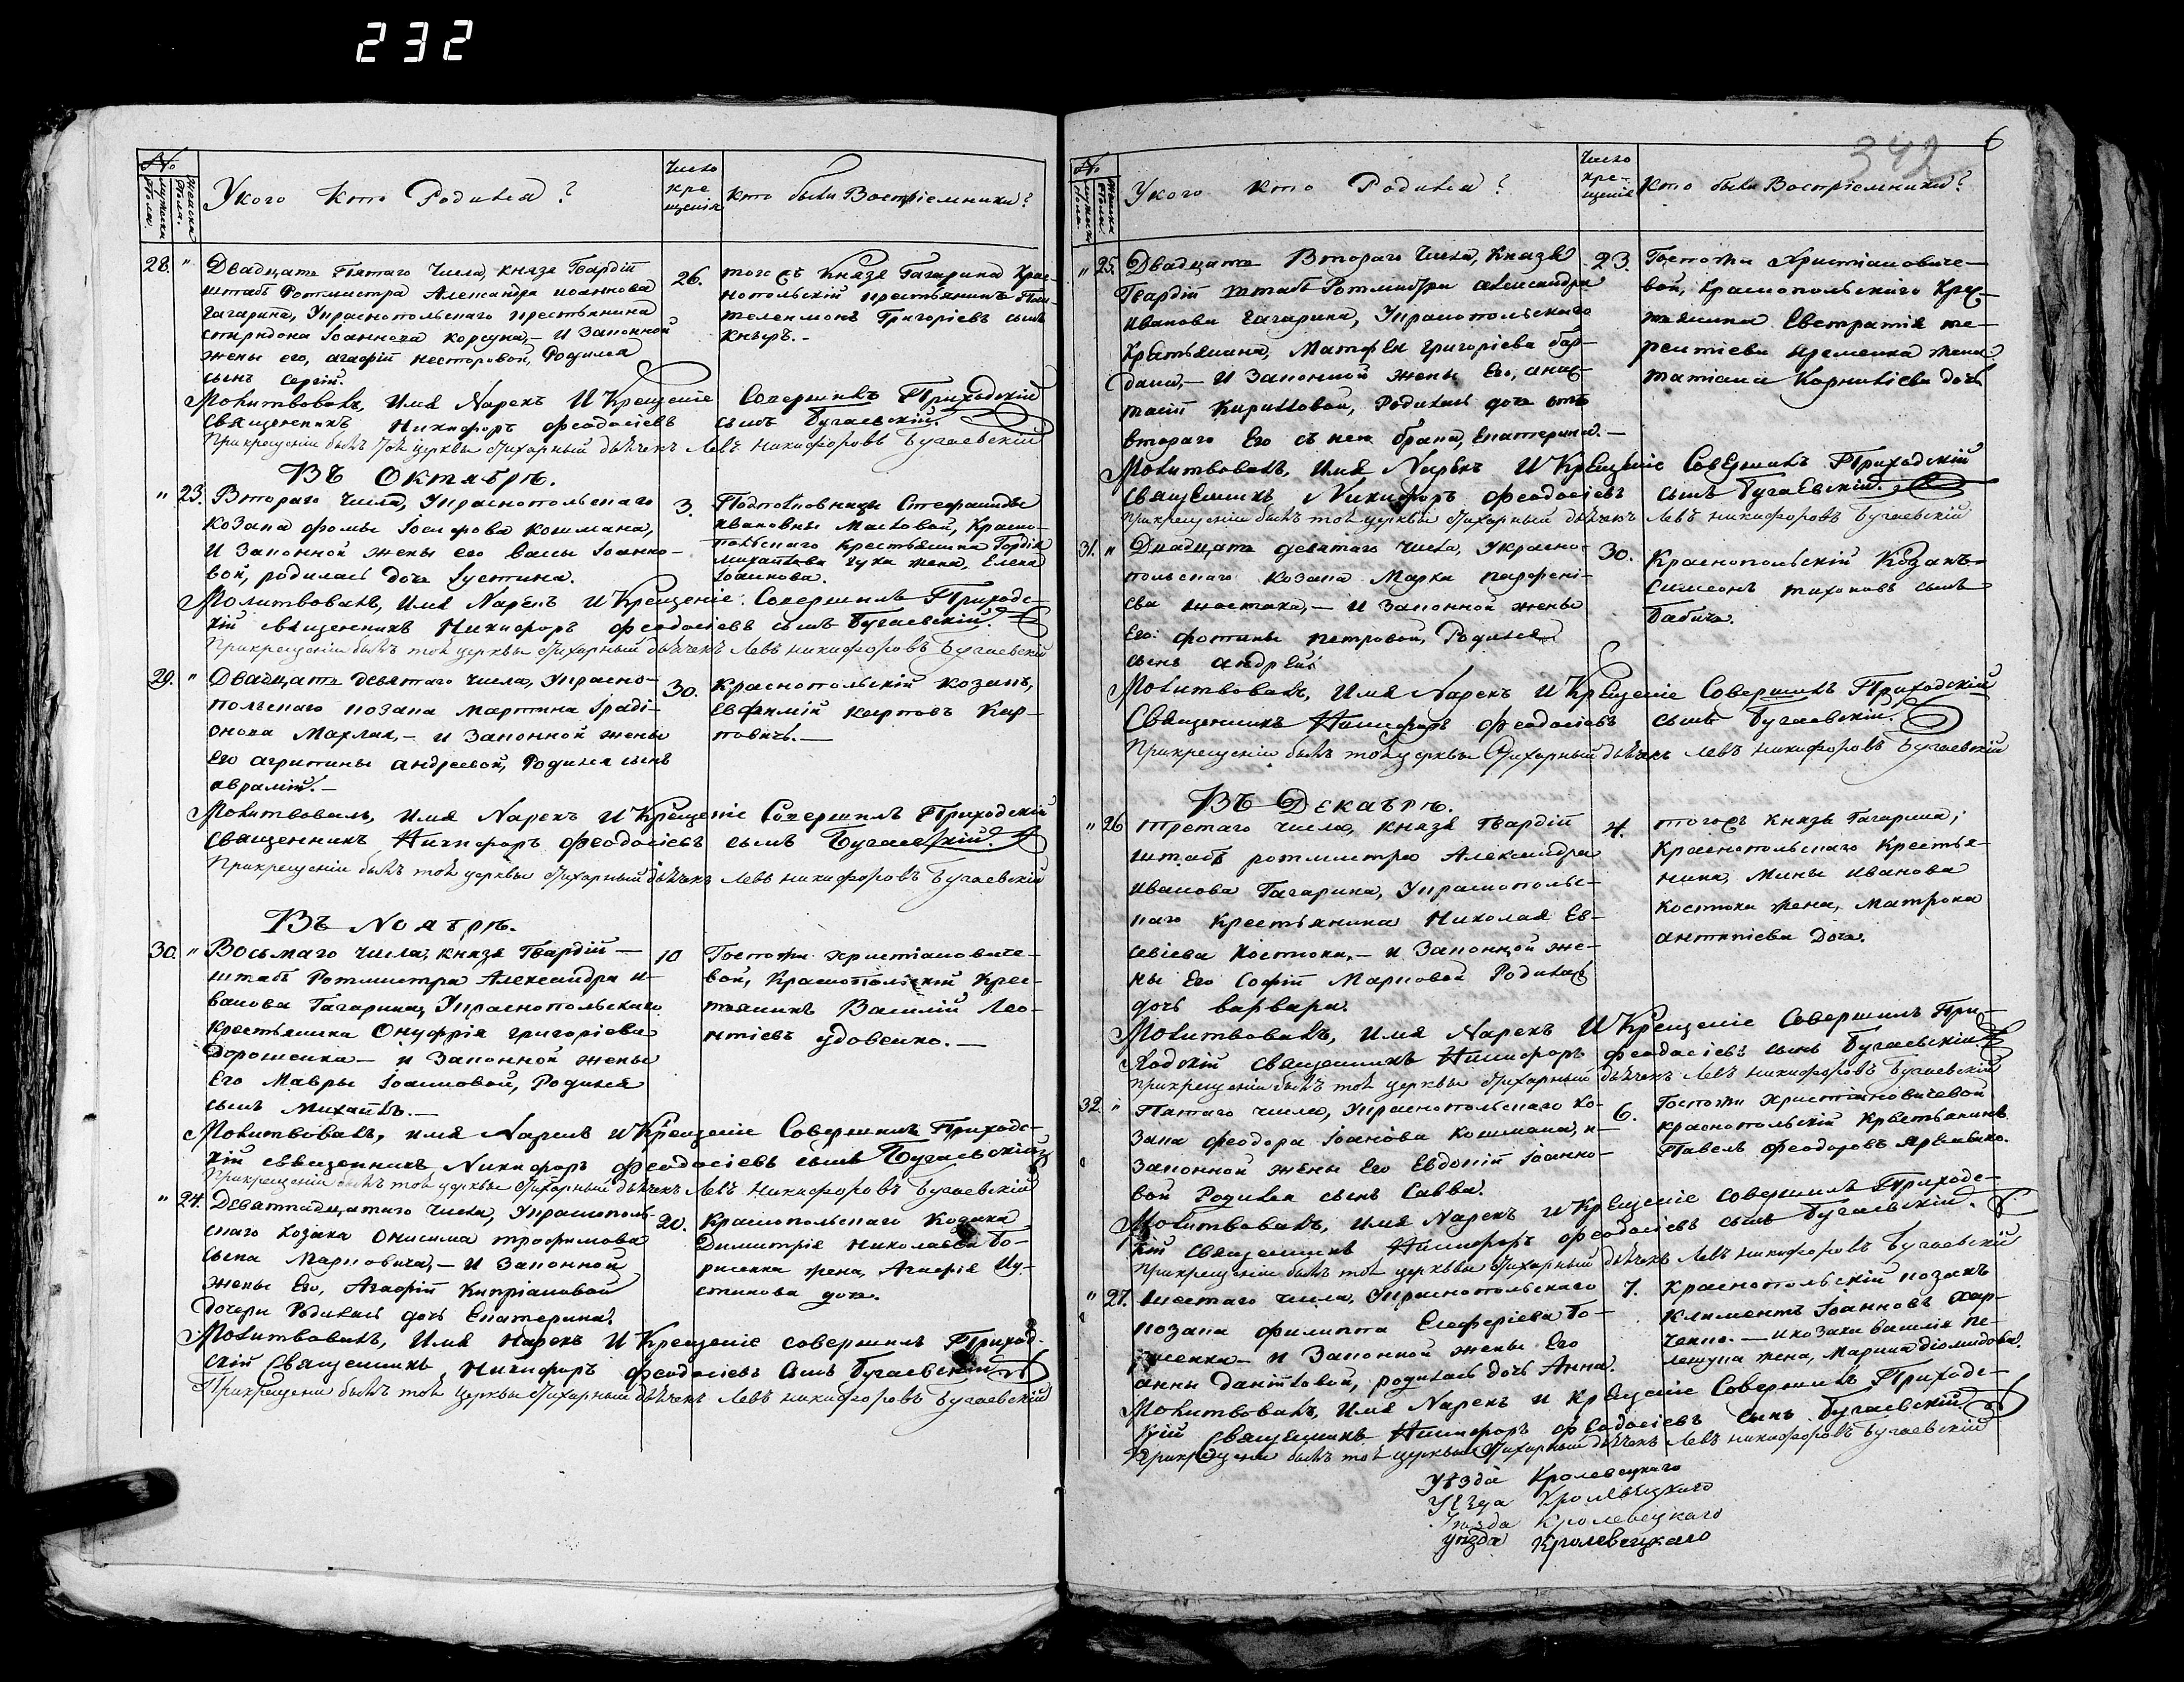 232
№
мужеска пола.
женска пола.
У кого кто Родился?
Число кре щенія
кто были Воспріемники?
28. " Двадцать Пятаго Числа, князя Гвардіи
штабъ Ротмистра Александра иоаннова
гагарина, У краснопольскаго крестьянина
спиридона Іоаннова коруна, – и Законной
жены его, агафіи несторовой, Родился
сынъ сергій.
26. того съ Князя Гагарина крас-
нопольскій крестьянинъ Пан-
телеимонъ Григоріевъ сынъ
кнырь. –
Молитвовалъ, Имя Нарекъ И Крещеніе Совершилъ Приходскій
священникъ Никифоръ феодосіевъ сынъ Бугаевскій.
При крещеніи былъ той церкви стихарный дьячекъ Левъ никифоровъ Бугаевскій
Въ Октябрѣ.
" 23. Втораго Числа, У краснопольскаго
козака фомы Іосифова кошмана,
И Законной жены его Васы Іоанно-
вой, родилась дочь Іустина.
3. Подполковницы Стефаниды
ивановны Масловой, Красно-
польскаго Крестьянина Гордія
михайлова гука жена, Елена
Іоаннова.
Молитвовалъ, Имя Нарекъ И Крещеніе Совершилъ Приходс-
кій священникъ Никифоръ феодосіевъ сынъ Бугаевскій.
При крещеніи былъ той церкви стихарный дьячекъ Левъ никифоровъ Бугаевскій
29. " Двадцать девятаго числа, У красно-
польскаго козака мартина Іраді-
онова Махлая, – и Законной жены
Его агрипины андреевой, Родился сынъ
аврамій. –
30. Краснопольскій козакъ,
Евфимій карповъ Кар-
повичъ. –
Молитвовалъ, Имя Нарекъ И Крещеніе Совершилъ Приходскій
священникъ Никифоръ феодосіевъ сынъ Бугаевскій.
При крещеніи былъ той церкви стихарный дьячекъ Левъ никифоровъ Бугаевскій
Въ Ноябрѣ.
30. " Восьмаго числа, князя Гвардіи –
штабъ Ротмистра Александра и-
ванова Гагарина, У краснопольскаго
Крестьянина Онуфрія григоріева
Дорошенка – и Законной жены
Его Мавры Іоанновой, Родился
сынъ Михаилъ. –
10 Госпожи христіановиче-
вой, Краснопольскій Крес-
тьянинъ Василій Лео-
нтіевъ удовенко. –
Молитвовалъ, имя Нарекъ и Крещеніе Совершилъ Приходс-
кій священникъ Никифоръ феодосіевъ сынъ Бугаевскій
При крещеніи былъ той церкви стихарный дьячекъ Левъ никифоровъ Бугаевскій
" 24. Девятнадцатаго числа, У краснополь-
скаго козака Онисима трофимова
сына Марковича, – И Законной
жены Его, Агафіи Кипріановой
дочери Родилась дочь Екатерина.
20. Краснопольскаго Козака
Димитрія Николаева Бо-
рисенка жена, Агафія Иу-
стинова дочь.
Молитвовалъ, Имя Нарекъ И Крещеніе совершилъ Приход-
скій Священникъ Никифоръ феодосіевъ Сынъ Бугаевскій
При крещеніи былъ той церкви стихарный дьячекъ Левъ никифоровъ Бугаевскій
342
6
№
мужеска пола.
женска пола.
У кого кто Родился?
Число кре- щенія
кто были Воспріемники?
" 25. Двадцать Втораго Числа, Князя
Гвардіи штабъ Ротмистра александра
иванова гагарина, У краснопольскаго
Крестьянина, Матфея григоріева бар-
дака, – И Законной жены Его, анас-
тасіи Кириловой, Родилась дочь отъ
втораго Его съ нею брака, Екатерина. –
23. Госпожи христіановиче-
вой, краснопольскаго Крес-
тьянина Евстратія те-
рентіева яременка жена
татіана Корниліева дочь
Молитвовалъ, Имя Нарекъ И Крещеніе Совершилъ Приходскій
священникъ Никифоръ феодосіевъ сынъ Бугаевскій.
При крещеніи былъ той церкви стихарный дьячекъ Левъ никифоровъ Бугаевскій
31. " Двадцать девятаго числа, У красно-
польскаго козака Марка парфені-
ева шостака, – И Законной жены
Его фотины петровой, Родился
сынъ андрей.
30. Краснопольскій Козакъ
Симеонъ тихоновъ сынъ
Бабичъ.
Молитвовалъ, Имя Нарекъ И Крещеніе Совершилъ Приходскій
Священникъ Никифоръ феодосіевъ сынъ Бугаевскій.
При крещеніи былъ той церкви стихарный дьячекъ Левъ никифоровъ Бугаевскій
Въ Декабрѣ.
" 26 третаго числа, князя Гвардіи
штабъ ротмистра Александра
иванова Гагарина, У краснопольс-
каго крестьянина Николая Ев-
севіева Костюка, – и Законной же-
ны Его Софіи Марковой Родилась
дочь варвара.
4. тогожъ князя Гагарина,
краснопольскаго Крестья-
нина, Мины иванова
костюка жена, матрона
антипіева дочь.
Молитвовалъ, Имя Нарекъ И Крещеніе Совершилъ При-
ходскій священникъ Никифоръ феодосіевъ сынъ Бугаевскій
При крещеніи былъ той церкви стихарный дьячекъ Левъ никифоровъ Бугаевскій
32 " Пятаго числа, У краснопольскаго ко-
зака феодора Іоанова кошмана, и
законной жены Его Евдокіи Іоанно-
вой Родился сынъ Савва.
6. Госпожи христіановичевой
краснопольскій Крестьянинъ
Павелъ феодоровъ
Молитвовалъ, Имя Нарекъ и Крещеніе совершилъ Приходс-
кій священникъ Никифоръ феодосіевъ сынъ Бугаевскій.
При крещеніи былъ той церкви стихарный дьячекъ Левъ никифоровъ Бугаевскій
" 27. шестаго числа, У краснопольскаго
козака филиппа Елеферіева Бо-
рисенка – и Законной жены Его
анны Даниловой, родилась дочь Анна.
7. краснопольскій козакъ
Климентъ Іоанновъ хар-
ченко. – и козака василія Пе-
лешука жена, Марина діомидова.
Молитвовалъ, Имя Нарекъ и Крещеніе Совершилъ Приходс-
кій священникъ Никифоръ феодосіевъ сынъ Бугаевскій
При крещеніи былъ той церкви стихарный дьячекъ Левъ никифоровъ Бугаевскій
уѣзда Кролевецкаго
Уѣзда Кролевецкаго
уѣзда Кролевецкаго
уѣзда Кролевецкаго